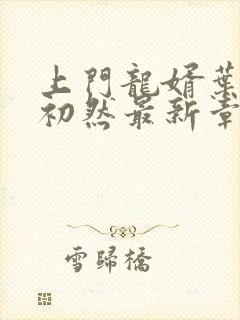 上門龍婿葉
初然最新章
雪歸橋